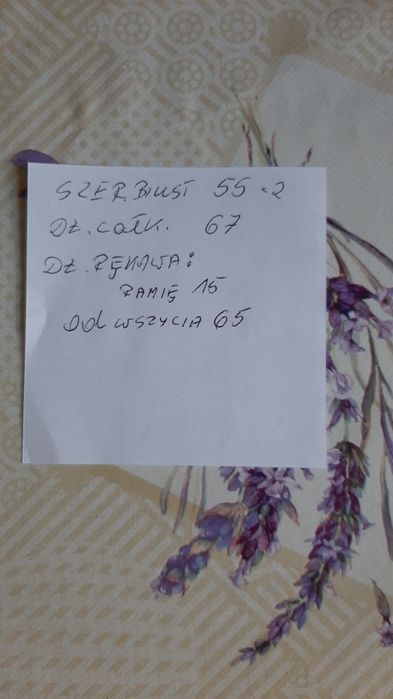 SZER. BIUST 55 x2
DŁ. CAŁK. 67
DŁ. RĘKAWA:
RAMIĘ 15
OD WSZYCIA 65